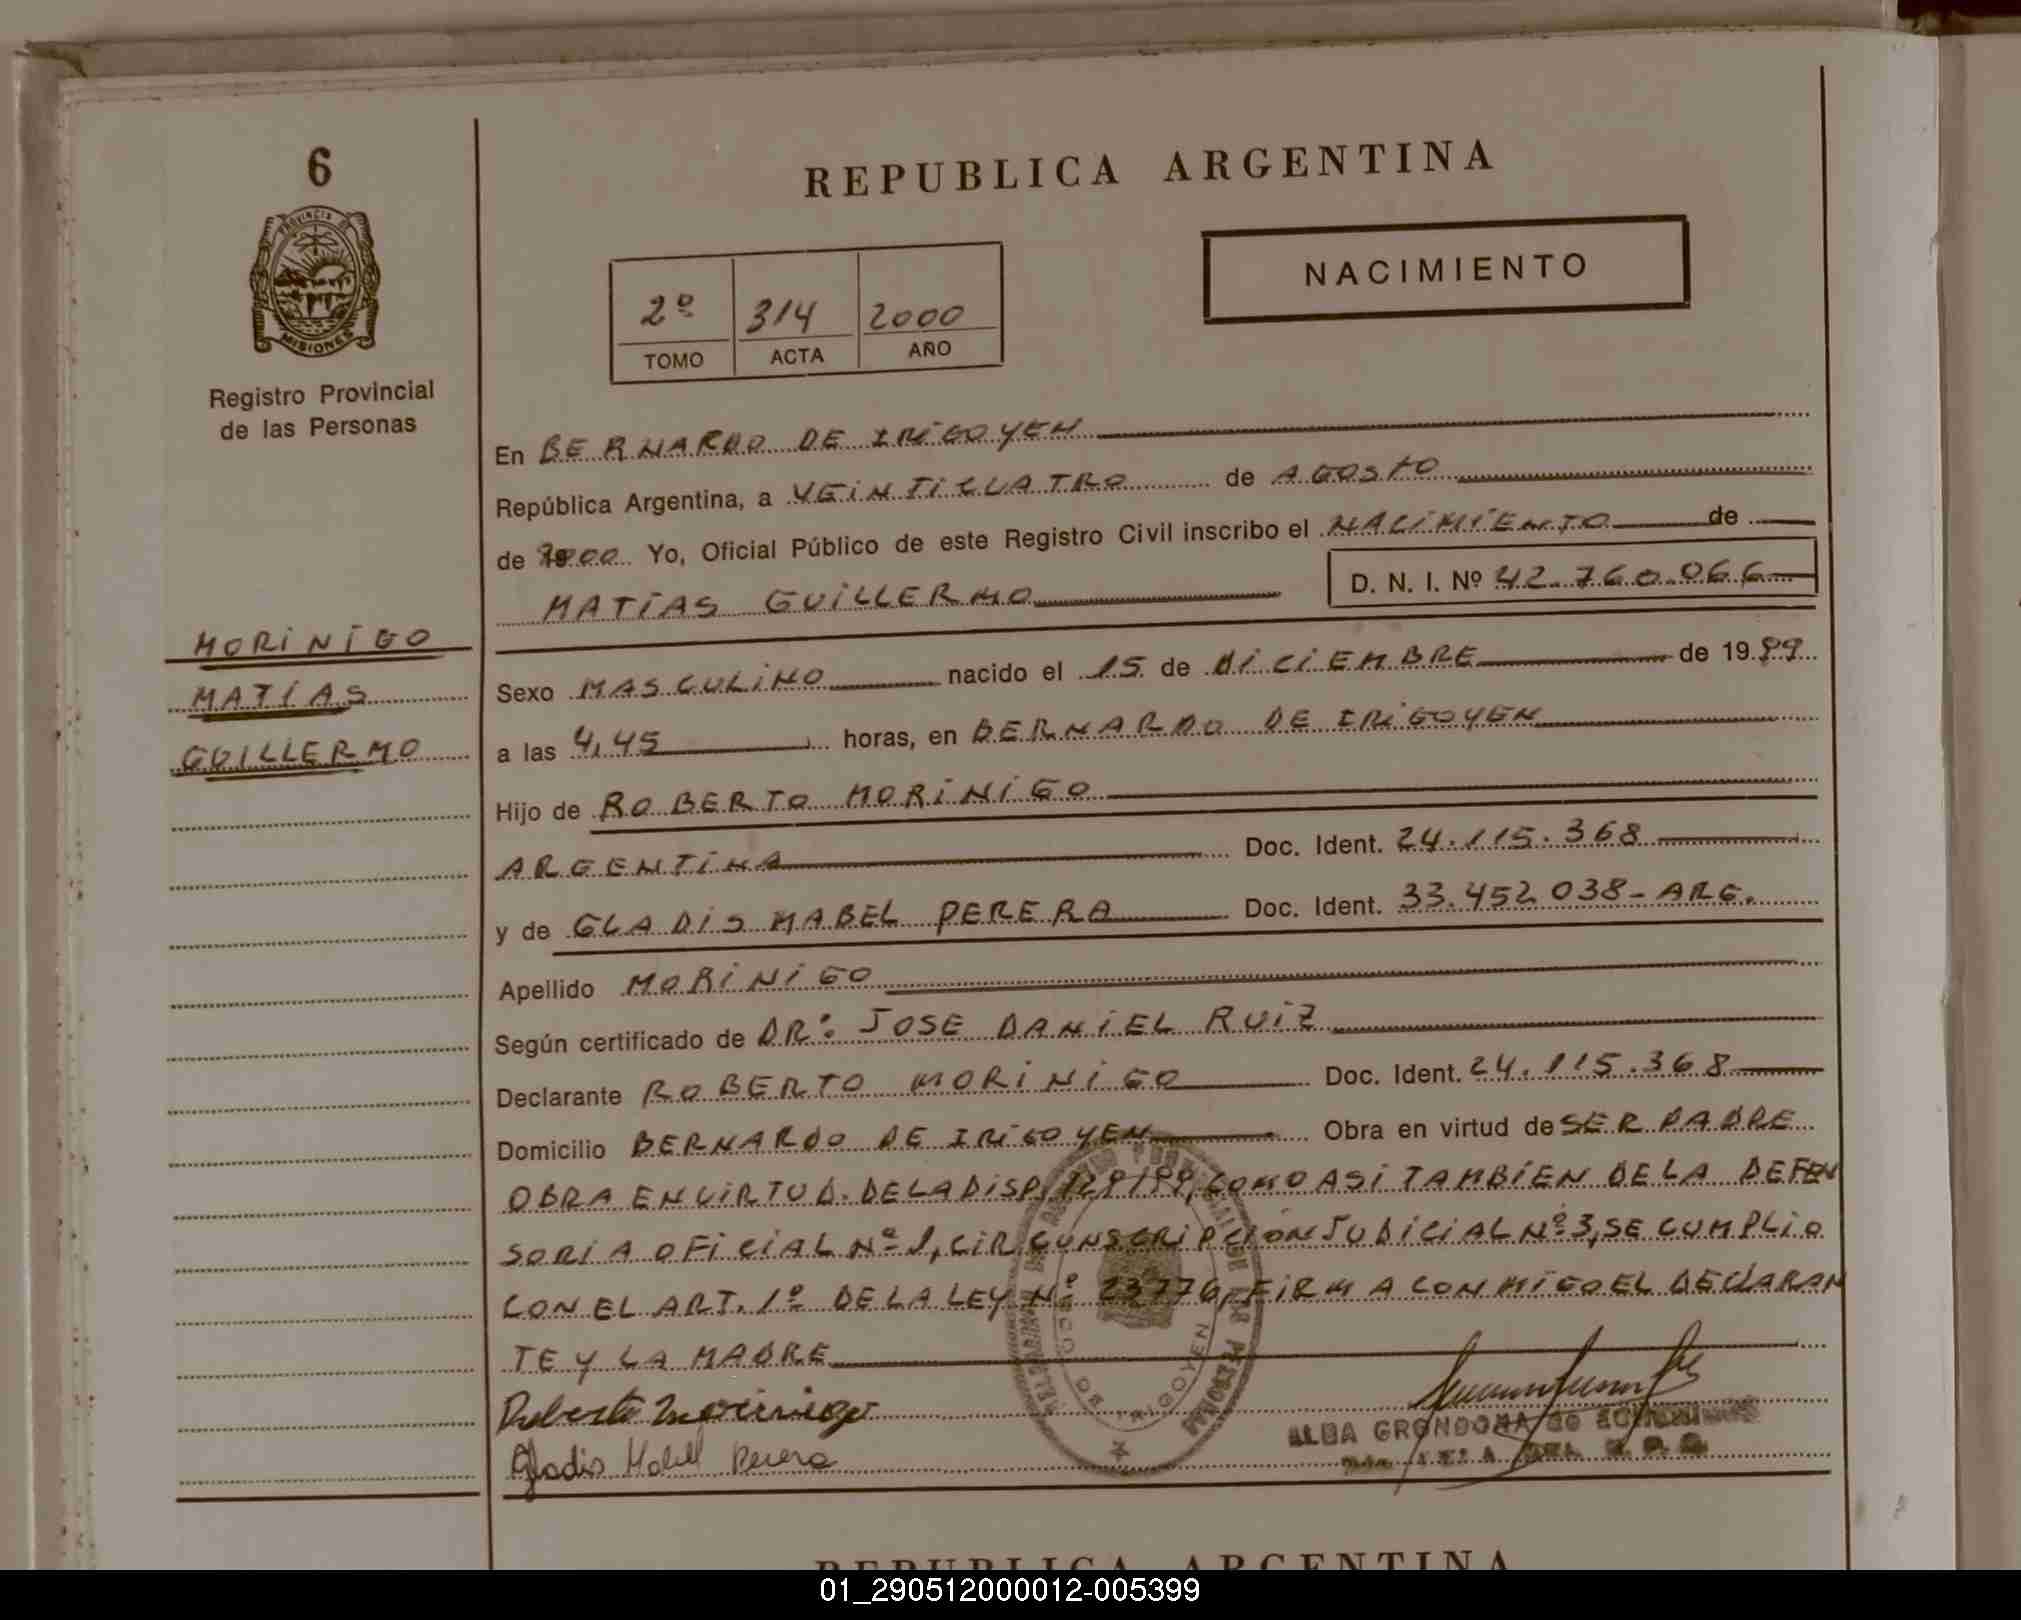 6
PROVINCIA DE
MISIONES
Registro Provincial
de las Personas
MORINIGO
MATIAS
GUILLERMO
REPUBLICA ARGENTINA
NACIMIENTO
2º 314 2000
TOMO ACTA AÑO
En BERNARDO DE IRIGOYEN
República Argentina, a VEINTICUATRO de AGOSTO
de 2000 Yo, Oficial Público de este Registro Civil inscribo el NACIMIENTO de
MATIAS GUILLERMO D. N. I. Nº 42.760.066
Sexo MASCULINO nacido el 15 de DICIEMBRE de 1999
a las 4,45 horas, en BERNARDO DE IRIGOYEN
Hijo de ROBERTO MORINIGO
ARGENTINA Doc. Ident. 24.115.368
y de GLADIS MABEL PERERA Doc. Ident. 33.452.038-ARG.
Apellido MORINIGO
Según certificado de DR: JOSE DANIEL RUIZ
Declarante ROBERTO MORINIGO Doc. Ident. 24.115.368
Domicilio BERNARDO DE IRIGOYEN Obra en virtud de SER PADRE
OBRA EN VIRTUD. DE LA DISP. 129/99, COMO ASI TAMBIEN DE LA DEFEN
SORIA OFICIAL Nº 1, CIRCUNSCRIPCION JUDICIAL Nº 3, SE CUMPLIO
CON EL ART. 1º DE LA LEY Nº 23776, FIRMA CONMIGO EL DECLARAN
TE Y LA MADRE
Roberto Morinigo
Gladis Mabel Perera
ALBA GRONDONA de
REPUBLICA ARGENTINA
01_290512000012-005399